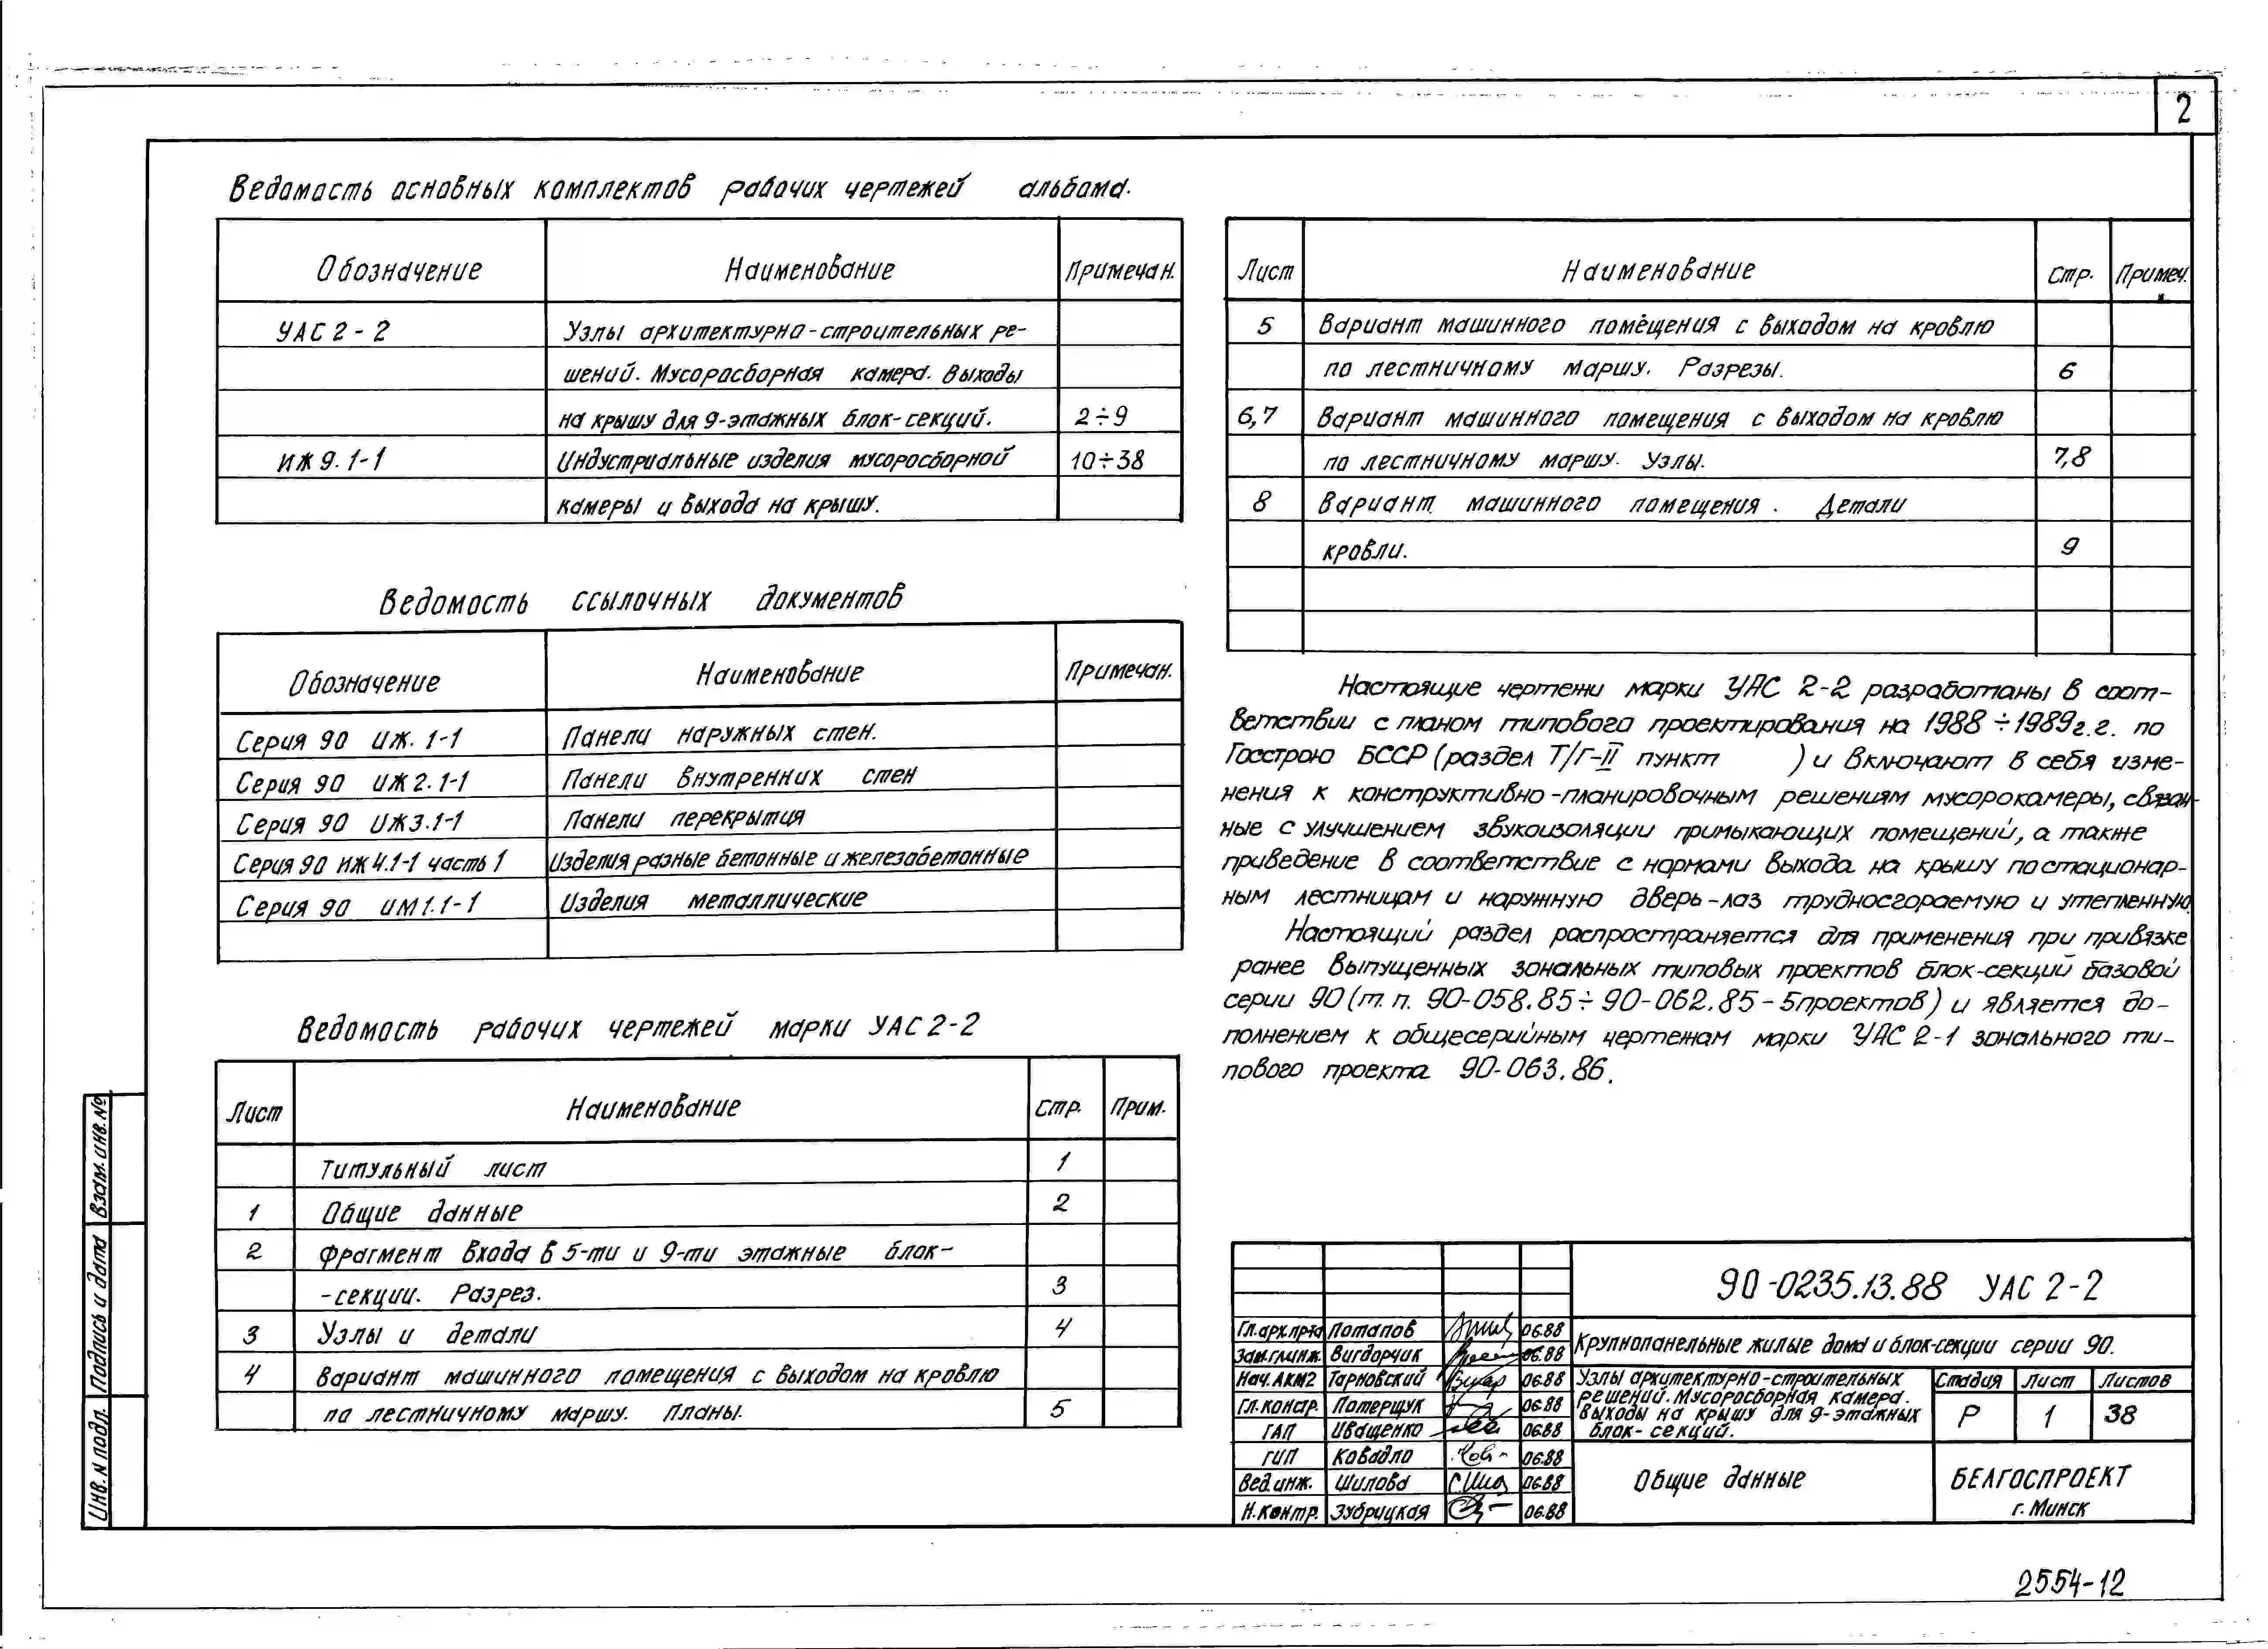 2
Ведомость основных комплектов рабочих чертежей альбома.
Обозначение Наименование Примечан.
УАС 2-2 Узлы архитектурно-строительных ре-
шений. Мусоросборная камера. Выходы
на крышу для 9-этажных блок-секций. 2÷9
ИЖ 9.1-1 Индустриальные изделия мусоросборной 10÷38
камеры и выхода на крышу.
Ведомость ссылочных документов
Обозначение Наименование Примечан.
Серия 90 ИЖ. 1-1 Панели наружных стен.
Серия 90 ИЖ 2.1-1 Панели внутренних стен
Серия 90 ИЖ3.1-1 Панели перекрытия
Серия 90 ИЖ 4.1-1 часть 1 Изделия разные бетонные и железобетонные
Серия 90 ИМ 1.1-1 Изделия металлические
Ведомость рабочих чертежей марки УАС 2-2
Лист Наименование Стр. Прим.
Титульный лист 1
1 Общие данные 2
2 Фрагмент входа в 5-ти и 9-ти этажные блок-
-секции. Разрез. 3
3 Узлы и детали 4
4 Вариант машинного помещения с выходом на кровлю
по лестничному маршу. Планы. 5
Лист Наименование Стр. Примеч.
5 Вариант машинного помещения с выходом на кровлю
по лестничному маршу. Разрезы. 6
6,7 Вариант машинного помещения с выходом на кровлю
по лестничному маршу. Узлы. 7,8
8 Вариант машинного помещения. Детали
кровли. 9
Настоящие чертежи марки УАС 2-2 разработаны в соот-
ветствии с планом типового проектирования на 1988÷1989г.г. по
Госстрою БССР (раздел Т/Г-II пункт ) и включают в себя изме-
нения к конструктивно-планировочным решениям мусорокамеры, связан-
ные с улучшением звукоизоляции примыкающих помещений, а также
приведение в соответствие с нормами выхода на крышу по стационар-
ным лестницам и наружную дверь-лаз трудносгораемую и утепленную
Настоящий раздел распространяется для применения при привязке
ранее выпущенных зональных типовых проектов блок-секций базовой
серии 90 (т.п. 90-058.85÷90-062.85-5проектов) и является до-
полнением к общесерийным чертежам марки УАС 2-1 зонального ти-
пового проекта 90-063.86.
90-0235.13.88 УАС 2-2
Гл.арх.пр-та Потапов 06.88
Зам.гл.инж. Вигдорчик 06.88
Нач.АКМ2 Тарновский 06.88
Гл.констр. Потерщук 06.88
ГАП Иващенко 06.88
ГИП Ковадло 06.88
Вед.инж. Шилова 06.88
Н.контр. Зубрицкая 06.88
Крупнопанельные жилые дома и блок-секции серии 90.
Узлы архитектурно-строительных
решений. Мусоросборная камера.
Выходы на крышу для 9-этажных
блок-секций.
Стадия Лист Листов
Р 1 38
Общие данные
БЕЛГОСПРОЕКТ
г. Минск
Взам.инв.№
Подпись и дата
Инв.N подл.
2554-12